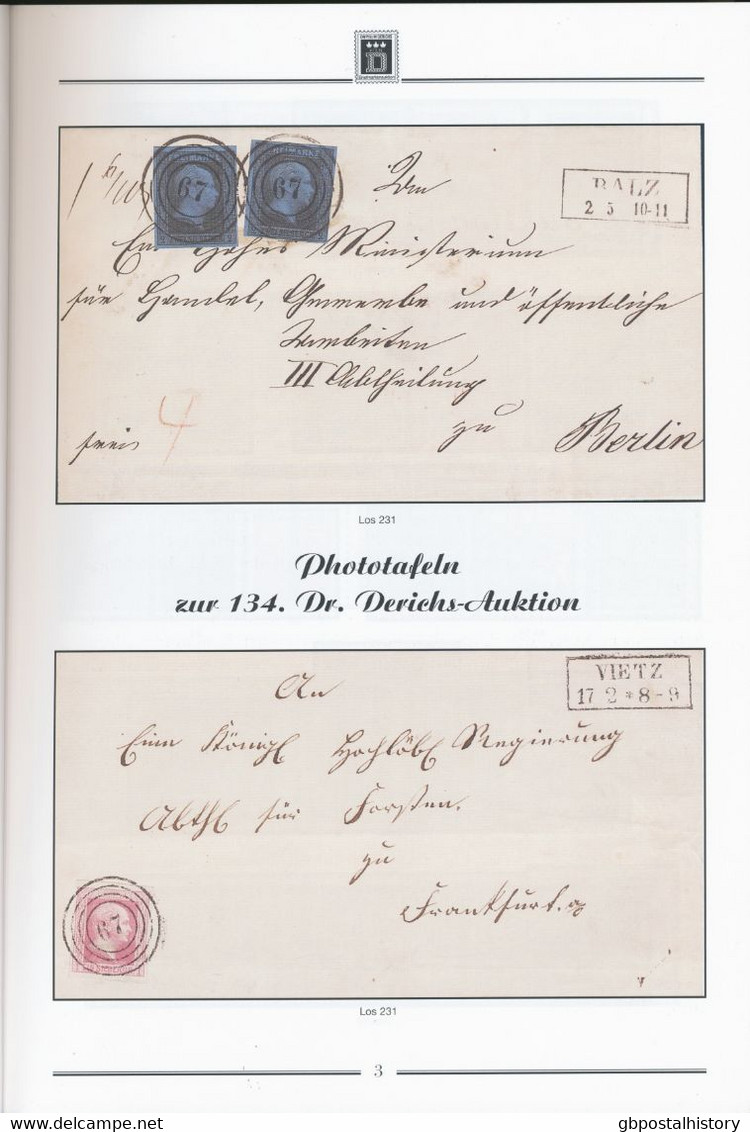 FREIMARKE FREIMARKE
67 67
An
BALZ
2 5 10-11
Ein Hohes Ministerium
für Handel, Gewerbe und öffentliche
Arbeiten
III Abtheilung
zu
Berlin
frei
4
Los 231
Phototafeln
zur 134. Dr. Derichs-Auktion
VIETZ
17 2 * 8-9
An
Eine Königl Hochlöbl Regierung
Abthl für Forsten.
zu
Frankfurt a/o
67
Los 231
3
gbpostalhistory